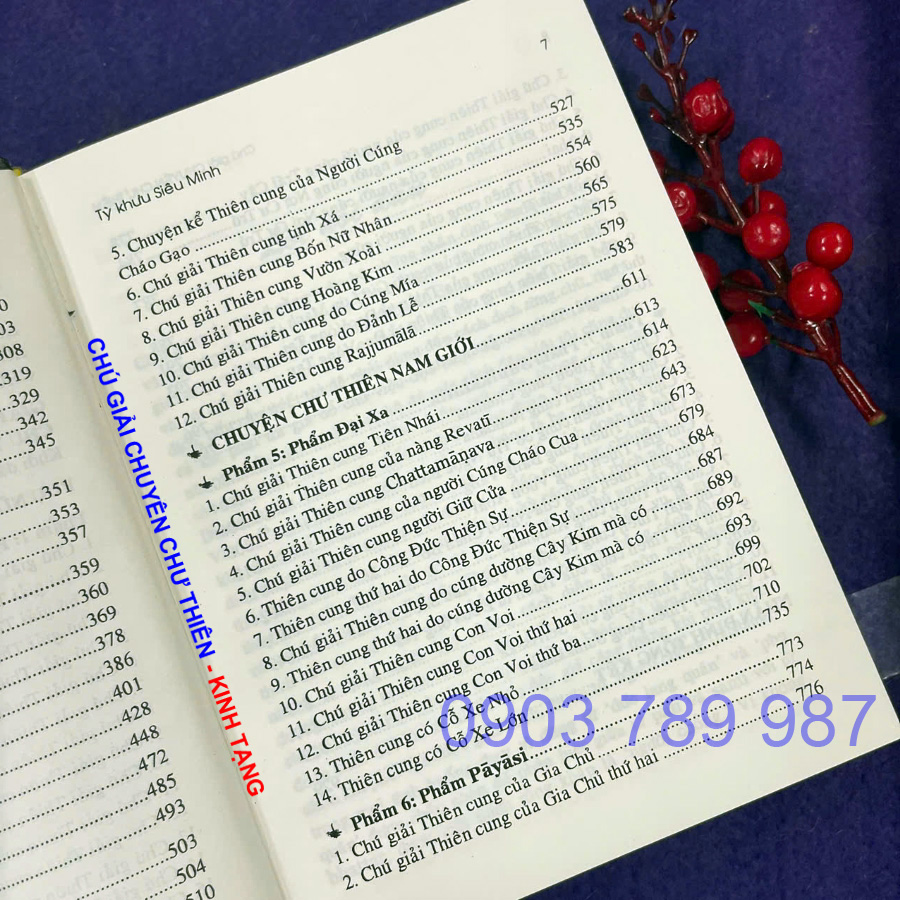 308
319
329
342
345
351
353
357
359
360
369
378
386
401
428
448
472
485
493
503
504
510
7
Tỳ khưu Siêu Minh
5. Chuyện kể Thiên cung của Người Cúng
Cháo Gạo ........ 527
6. Chú giải Thiên cung tinh Xá ........ 535
7. Chú giải Thiên cung Bốn Nữ Nhân ........ 554
8. Chú giải Thiên cung Vườn Xoài ........ 560
9. Chú giải Thiên cung Hoàng Kim ........ 565
10. Chú giải Thiên cung do Cúng Mía ........ 575
11. Chú giải Thiên cung do Đảnh Lễ ........ 579
12. Chú giải Thiên cung Rajjumālā ........ 583
CHUYỆN CHƯ THIÊN NAM GIỚI ........ 611
Phẩm 5: Phẩm Đại Xa ........ 613
1. Chú giải Thiên cung Tiên Nhái ........ 614
2. Chú giải Thiên cung của nàng Revatī ........ 623
3. Chú giải Thiên cung Chattamāṇava ........ 643
4. Chú giải Thiên cung của người Cúng Cháo Cua ........ 673
5. Chú giải Thiên cung người Giữ Cửa ........ 679
6. Thiên cung do Công Đức Thiện Sự ........ 684
7. Thiên cung thứ hai do Công Đức Thiện Sự ........ 687
8. Chú giải Thiên cung do cúng dường Cây Kim mà có ........ 689
9. Thiên cung thứ hai do cúng dường Cây Kim mà có ........ 692
10. Chú giải Thiên cung Con Voi ........ 693
11. Chú giải Thiên cung Con Voi thứ hai ........ 699
12. Chú giải Thiên cung Con Voi thứ ba ........ 702
13. Thiên cung có Cỗ Xe Nhỏ ........ 710
14. Thiên cung có Cỗ Xe Lớn ........ 735
Phẩm 6: Phẩm Pāyāsi ........ 773
1. Chú giải Thiên cung của Gia Chủ ........ 774
2. Chú giải Thiên cung của Gia Chủ thứ hai ........ 776
CHÚ GIẢI CHUYỆN CHƯ THIÊN - KINH TẠNG
0903 789 987